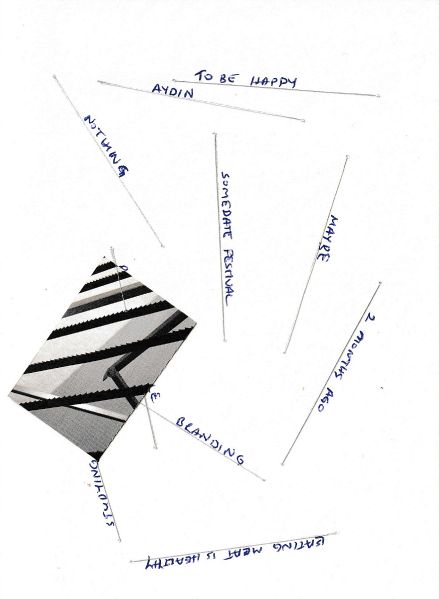 TO BE HAPPY
AYDIN
NOTHING
SOMEDATE FESTIVAL
MAYBE
2 MONTHS AGO
BRANDING
STUDYING
EATING MEAT IS HEALTHY